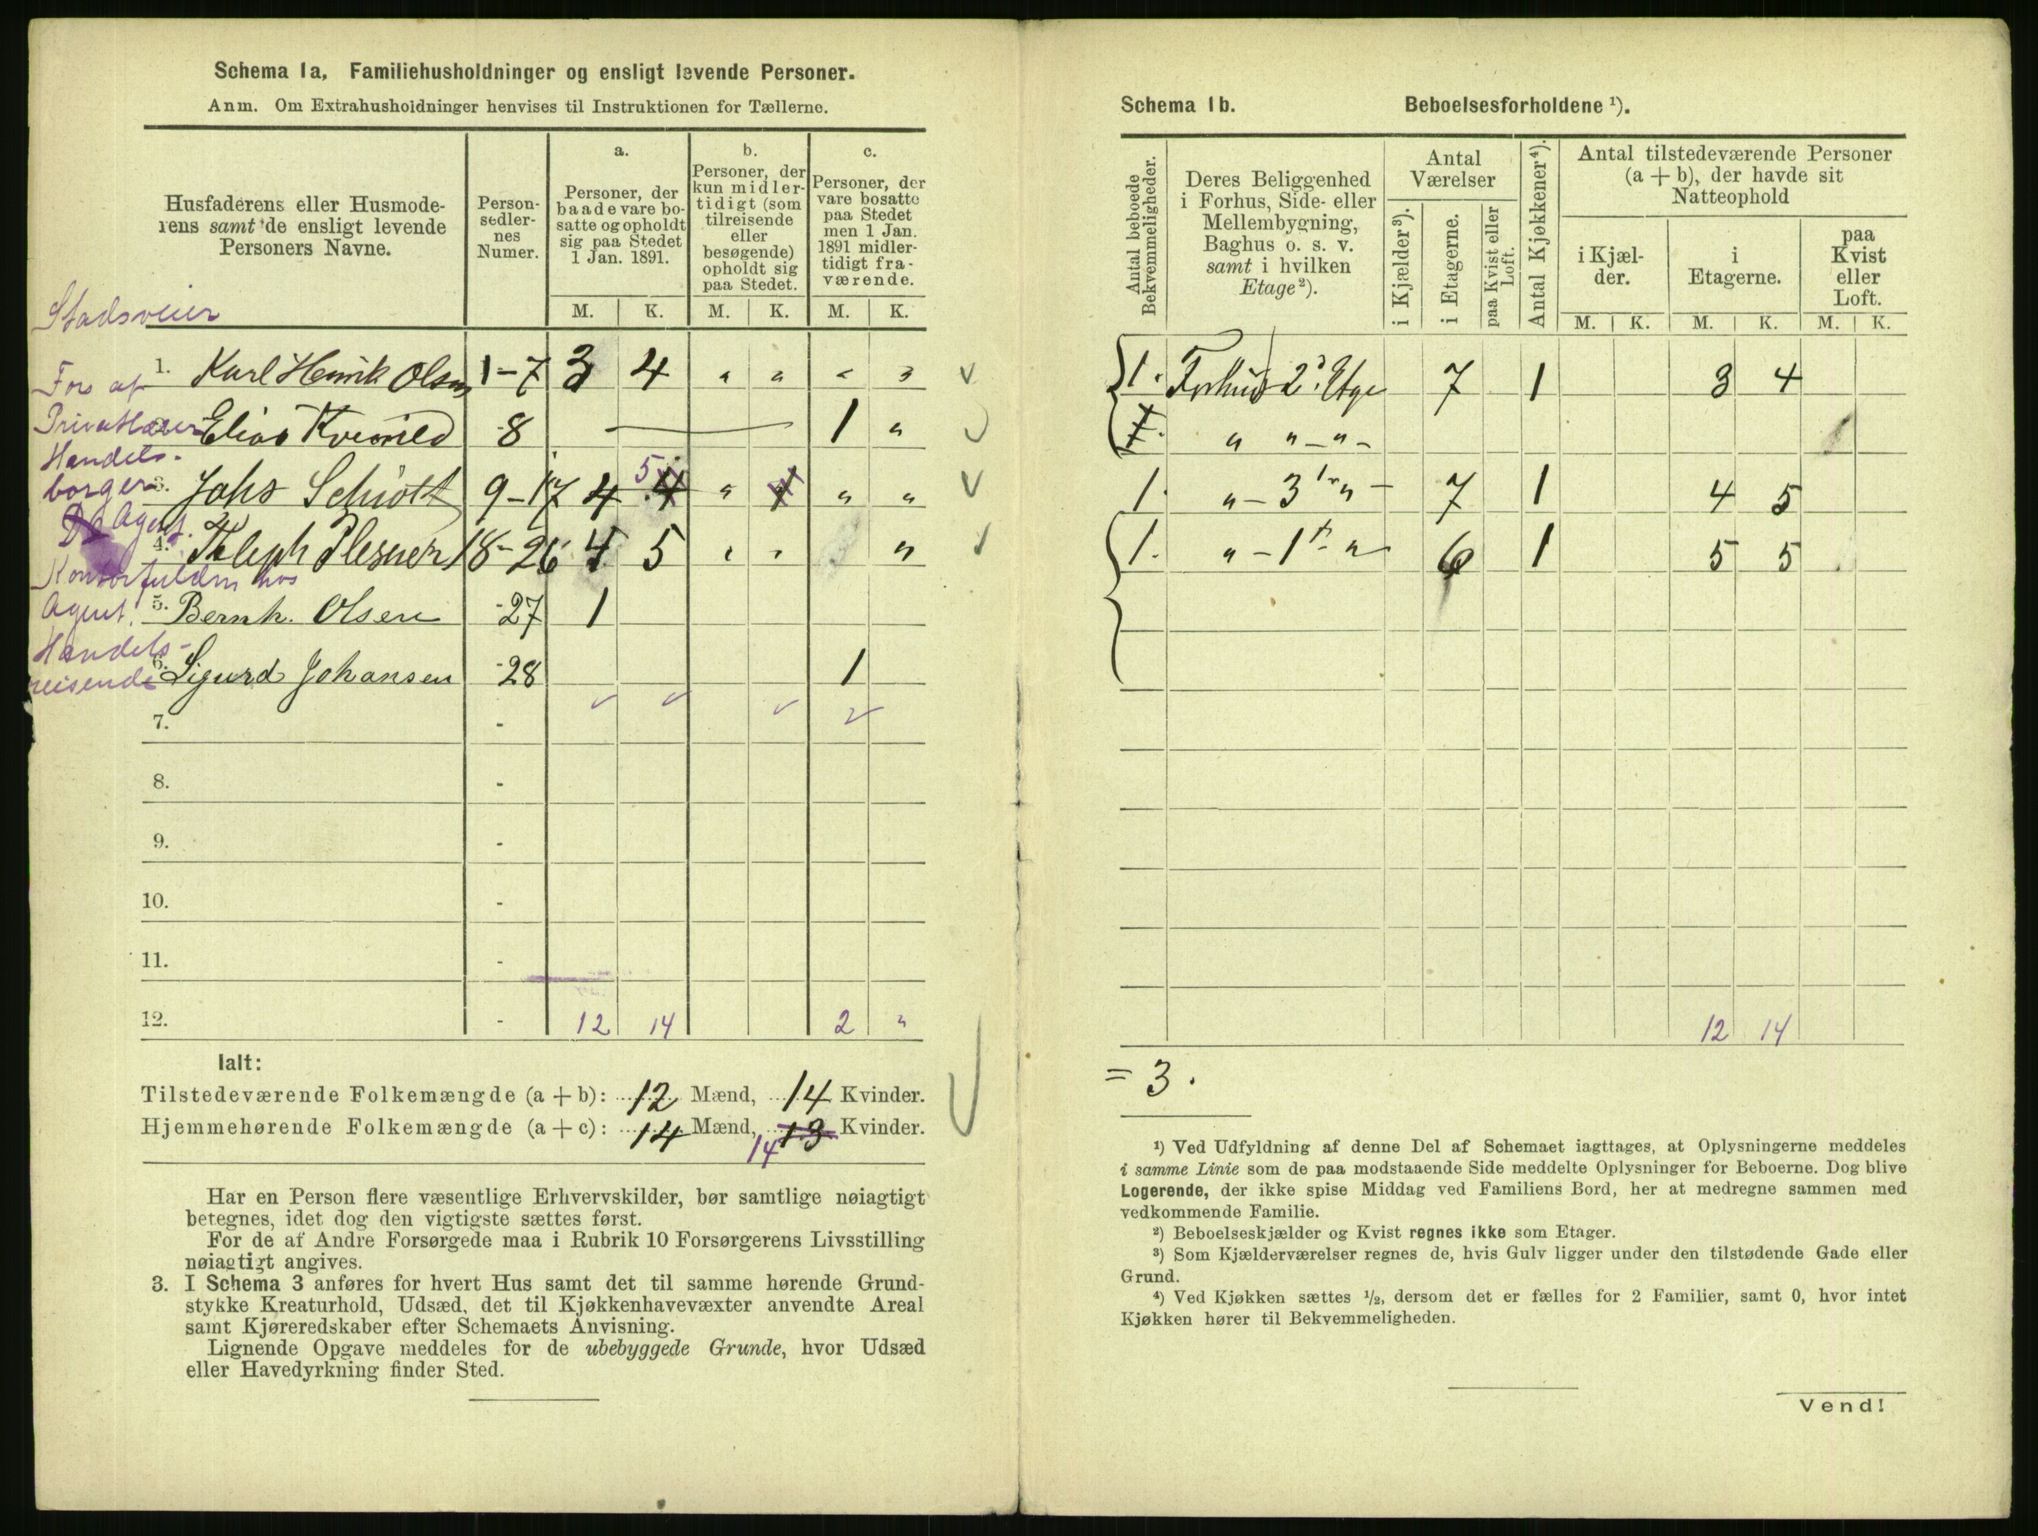 Schema 1a, Familiehusholdninger og ensligt levende Personer.
Anm. Om Extrahusholdninger henvises til Instruktionen for Tællerne.
Husfaderens eller Husmode-
rens samt de ensligt levende
Personers Navne.
Person-
sedler-
nes
Numer.
a.
Personer, der
baade vare bo-
satte og opholdt
sig paa Stedet
1 Jan. 1891.
b.
Personer, der
kun midler-
tidigt (som
tilreisende
eller
besøgende)
opholdt sig
paa Stedet.
c.
Personer, der
vare bosatte
paa Stedet
men 1 Jan.
1891 midler-
tidigt fra-
værende.
M. K. M. K. M. K.
Stadsveier
1. Karl Henrik Olsen 1-7 3 4 " " " "
Fors af
Privatlærer Elias Kvernled -8 1 "
Handels-
borger 3. Johs Schiøtt 9-17 4 5 4 " 1 " "
Agent.
4. Theleph Plesner 18-26 4 5 " " "
Kontorfuldm hos
Agent. 5. Bernh. Olsen -27 1
Handels-
reisende 6. Sigurd Johansen -28 1
7. -
8. -
9. -
10. -
11. -
12. - 12 14 2 "
Ialt:
Tilstedeværende Folkemængde (a + b): 12 Mænd, 14 Kvinder.
Hjemmehørende Folkemængde (a + c): 14 Mænd, 14 13 Kvinder.
Har en Person flere væsentlige Erhvervskilder, bør samtlige nøiagtigt
betegnes, idet dog den vigtigste sættes først.
For de af Andre Forsørgede maa i Rubrik 10 Forsørgerens Livsstilling
nøiagtigt angives.
3. I Schema 3 anføres for hvert Hus samt det til samme hørende Grund-
stykke Kreaturhold, Udsæd, det til Kjøkkenhavevæxter anvendte Areal
samt Kjøreredskaber efter Schemaets Anvisning.
Lignende Opgave meddeles for de ubebyggede Grunde, hvor Udsæd
eller Havedyrkning finder Sted.
Schema 1b. Beboelsesforholdene ¹).
Antal beboede
Bekvemmeligheder.
Deres Beliggenhed
i Forhus, Side- eller
Mellembygning,
Baghus o. s. v.
samt i hvilken
Etage ²).
Antal
Værelser
i Kjælder ³).
i Etagerne.
paa Kvist eller
Loft.
Antal Kjøkkener ⁴).
Antal tilstedeværende Personer
(a + b), der havde sit
Natteophold
i Kjæl-
der.
i
Etagerne.
paa
Kvist
eller
Loft.
M. K. M. K. M. K.
1. Forhus 2 Etge 7 1 3 4
1. " " - " -
1. " - 3 " - 7 1 4 5
1. " - 1 - " 6 1 5 5
12 14
= 3.
¹) Ved Udfyldning af denne Del af Schemaet iagttages, at Oplysningerne meddeles
i samme Linie som de paa modstaaende Side meddelte Oplysninger for Beboerne. Dog blive
Logerende, der ikke spise Middag ved Familiens Bord, her at medregne sammen med
vedkommende Familie.
²) Beboelseskjælder og Kvist regnes ikke som Etager.
³) Som Kjælderværelser regnes de, hvis Gulv ligger under den tilstødende Gade eller
Grund.
⁴) Ved Kjøkken sættes ½, dersom det er fælles for 2 Familier, samt 0, hvor intet
Kjøkken hører til Bekvemmeligheden.
Vend!